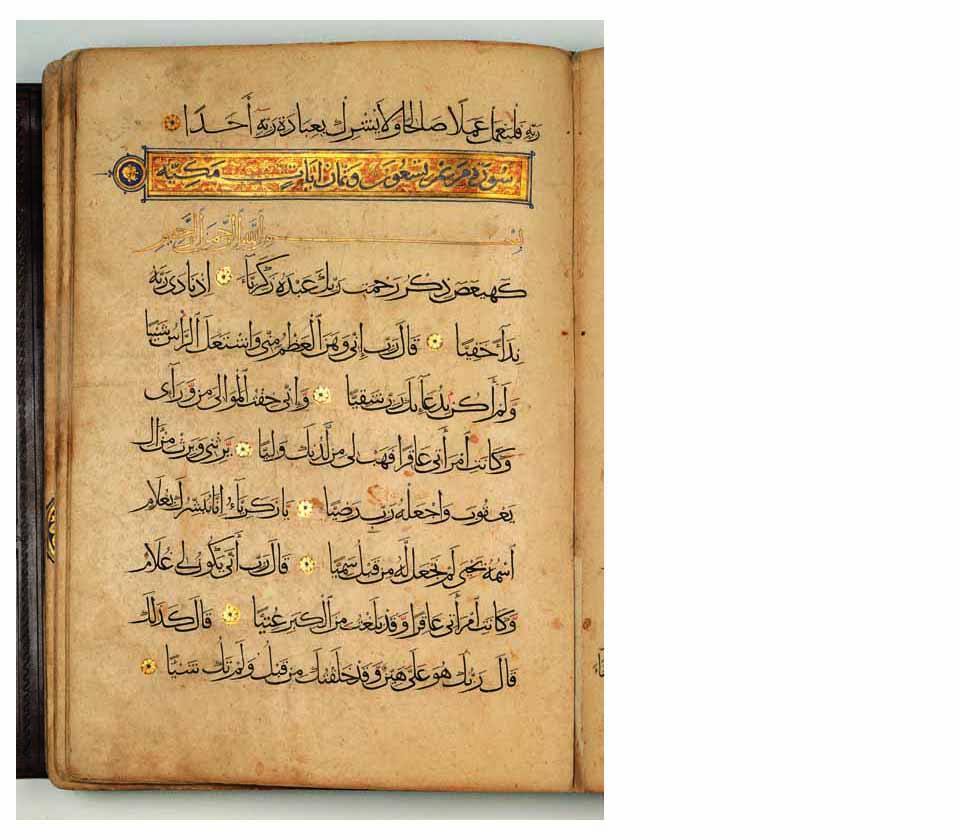 رَبِّهِ فَلْيَعْمَلْ عَمَلًا صَالِحًا وَلَا يُشْرِكْ بِعِبَادَةِ رَبِّهِ أَحَدًا
سورة مريم تسعون وثمان ايات مكيه
بسم الله الرحمن الرحيم
كهيعص ذِكْرُ رَحْمَتِ رَبِّكَ عَبْدَهُ زَكَرِيَّاءَ اِذْ نَادَى رَبَّهُ
نِدَاءً خَفِيًّا قَالَ رَبِّ إِنِّي وَهَنَ الْعَظْمُ مِنِّي وَاشْتَعَلَ الرَّأْسُ شَيْبًا
وَلَمْ أَكُنْ بِدُعَائِكَ رَبِّ شَقِيًّا وَإِنِّي خِفْتُ الْمَوَالِيَ مِنْ وَرَائِي
وَكَانَتِ امْرَأَتِي عَاقِرًا فَهَبْ لِي مِنْ لَدُنْكَ وَلِيًّا يَرِثُنِي وَيَرِثُ مِنْ آلِ
يَعْقُوبَ وَاجْعَلْهُ رَبِّ رَضِيًّا يَا زَكَرِيَّاءُ إِنَّا نُبَشِّرُكَ بِغُلَامٍ
اسْمُهُ يَحْيَى لَمْ نَجْعَلْ لَهُ مِنْ قَبْلُ سَمِيًّا قَالَ رَبِّ أَنَّى يَكُونُ لِي غُلَامٌ
وَكَانَتِ امْرَأَتِي عَاقِرًا وَقَدْ بَلَغْتُ مِنَ الْكِبَرِ عِتِيًّا قَالَ كَذَلِكَ
قَالَ رَبُّكَ هُوَ عَلَيَّ هَيِّنٌ وَقَدْ خَلَقْتُكَ مِنْ قَبْلُ وَلَمْ تَكُ شَيْئًا